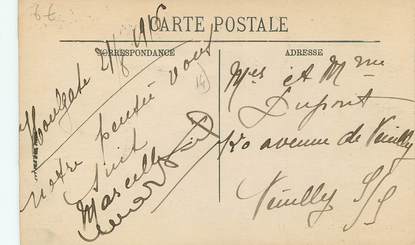 CARTE POSTALE
CORRESPONDANCE
ADRESSE
Houlgate 21/8 1916
notre pensée vous
suit
Marcelle
Mrs et Mme
Dupont
avenue de Neuilly
Neuilly S/S